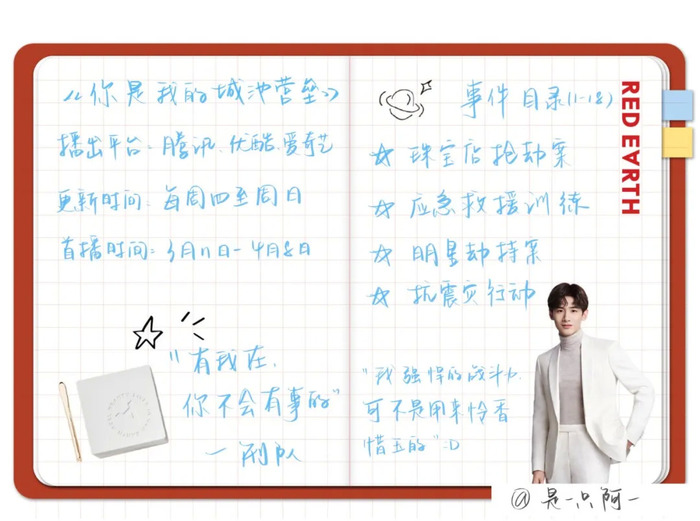 《你是我的城池营垒》
播出平台:腾讯.优酷.爱奇艺
更新时间:每周四至周日
首播时间:3月11日-4月8日
"有我在,
你不会有事的"
一邢队
事件目录(1-18)
☆ 珠宝店抢劫案
☆ 应急救援训练
☆ 明星劫持案
☆ 抗震灾行动
"我强悍的战斗力
可不是用来怜香
惜玉的":D
RED EARTH
@是一只阿一